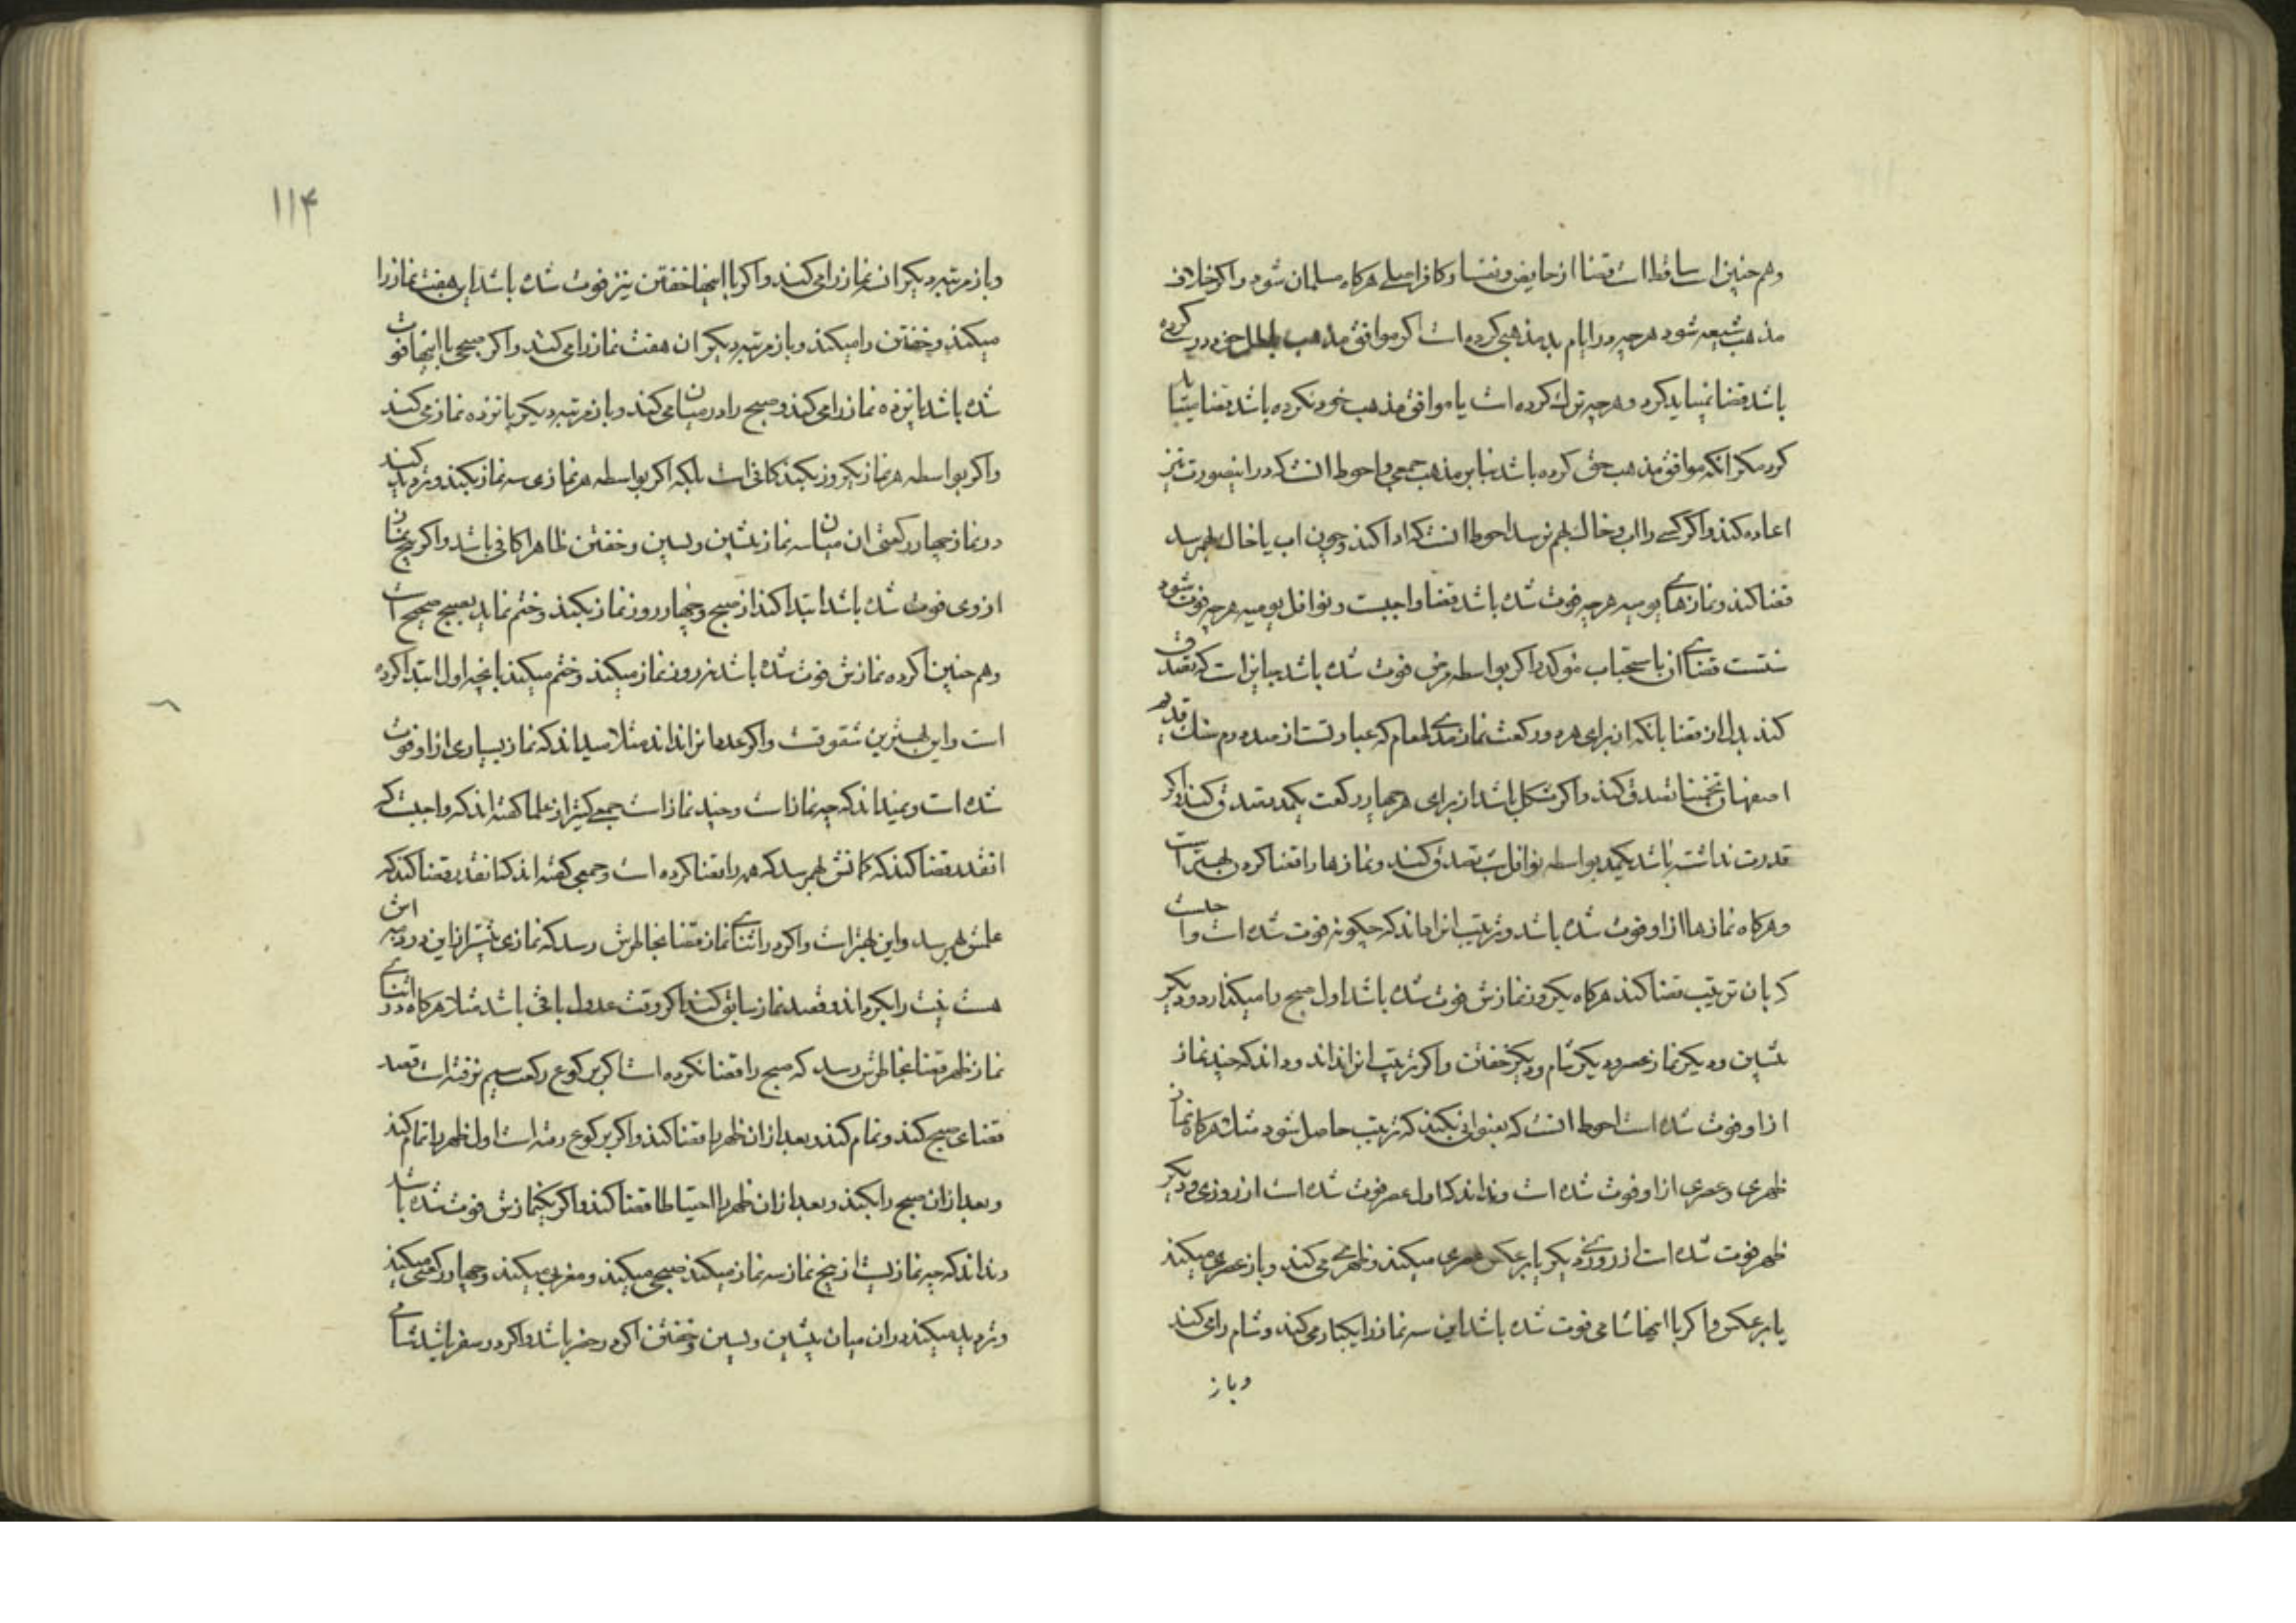 وهم چنین ساقط است قضا از حایض و نفسا و کافر اصلی هرکاه مسلمان شود و اکر خلاف
مذهب شیعه شود هرچه در ایام بد مذهبی کرده است اکر موافق مذهب باطل خود کرده
باشد قضا نمیباید کرد و هرچه ترک کرده است یا موافق مذهب خود نکرده باشد قضا میباید
کرد مکر انکه موافق مذهب حق کرده باشد بنابر مذهب جمعی و احوط انست که در اینصورت نیز
اعاده کند و اکر کسی را اب و خاک بهم نرسد احوط انست که ادا کند و چون اب یا خاک بهم رسد
قضا کند و نمازهای یومیه هرچه فوت شده باشد قضا واجبست و نوافل یومیه هرچه فوت شود
سنتست قضای ان باستحباب موکد و اکر بواسطه مرض فوت شده باشد جایز است که تصدق
کند بدل از قضا بانکه از برای هر دو رکعت نماز مدی طعام که عبارتست از صد درم سنک قدیم
اصفهان تخمینا تصدق کند و اکر مشکل باشد از برای هر چهار رکعت یکمد تصدق کند و اکر
قدرت نداشته باشد یکمد بواسطه نوافل شب تصدق کند و نمازها را قضا کردن بهتر است
و هرکاه نمازها از او فوت شده باشد و ترتیب انرا داند که چکونه فوت شده است واجبست
که بان ترتیب قضا کند هرکاه یکروز نمازش فوت شده باشد اول صبح را میکذارد و دیکر
پشین و دیکر نماز عصر و دیکر شام و دیکر خفتن و اکر ترتیب انرا نداند و داند که چند نماز
از او فوت شده است احوط انست که بعنوانی بکند که ترتیب حاصل شود مثلا هرکاه نماز
ظهری و عصری از او فوت شده است و نداند که اول عصر فوت شده است از روزی و دیکر
ظهر فوت شده است از روزی دیکر یا برعکس عصری میکند و ظهری می کند و باز عصری میکند
یا برعکس و اکر با اینها شامی فوت شده باشد این سه نماز را یکبار می کند و شام را می کند
وباز
۱۱۴
وباز مرتبه دیکر ان نماز را می کند و اکر با اینها خفتن نیز فوت شده باشد این هفت نماز را
میکند و خفتن را میکند و باز مرتبه دیکر ان هفت نماز را می کند و اکر صبحی با اینها فوت
شده باشد پانزده نماز را می کند و صبح را در میان می کند و باز مرتبه دیکر پانزده نماز می کند
و اکر بواسطه هر نماز یکروز بکند کافی است بلکه اکر بواسطه هر نمازی سه نماز بکند و تردید کند
در نماز چهار رکعتی ان میان سه نماز پشین و پسین و خفتن ظاهرا کافی باشد و اکر پنج نماز
از وی فوت شده باشد ابتدا کند از صبح و چهار روز نماز بکند و ختم نماید بصبح صحیح است
و هم چنین اکر ده نمازش فوت شده باشد نه روز نماز میکند و ختم میکند بانچه اول ابتدا کرده
است و این بهترین شقوقست و اکر عدد انرا نداند مثلا میداند که نماز بسیاری از او فوت
شده است و نمیداند که چه نماز است و چند نماز است جمعی کثیر از علما کفته اند که واجبست که
انقدر قضا کند که کمانش بهم رسد که همه را قضا کرده است و جمعی کفته اند که انقدر قضا کند که
علمش بهم رسد و این بهتر است و اکر در اثنای نماز قضا بخاطرش رسد که نمازی پیشتر از این در ذمه اش
هست نیت را بکرداند و قصد نماز سابق کند اکر وقت عدول باقی باشد مثلا هرکاه در اثنای
نماز ظهر قضا بخاطرش رسد که صبح را قضا نکرده است اکر برکوع رکعت سیم نرفته است قصد
قضای صبح کند و تمام کند و بعد از ان ظهر را قضا کند و اکر برکوع رفته است اول ظهر را تمام کند
و بعد از ان صبح را بکند و بعد از ان ظهر را احتیاطا قضا کند و اکر یکنمازش فوت شده باشد
و نداند که چه نماز است از پنج نماز سه نماز میکند صبحی میکند و مغربی میکند و چهار رکعتی میکند
و تردید میکند در ان میان پشین و پسین و خفتن اکر در حضر باشد و اکر در سفر باشد شامی